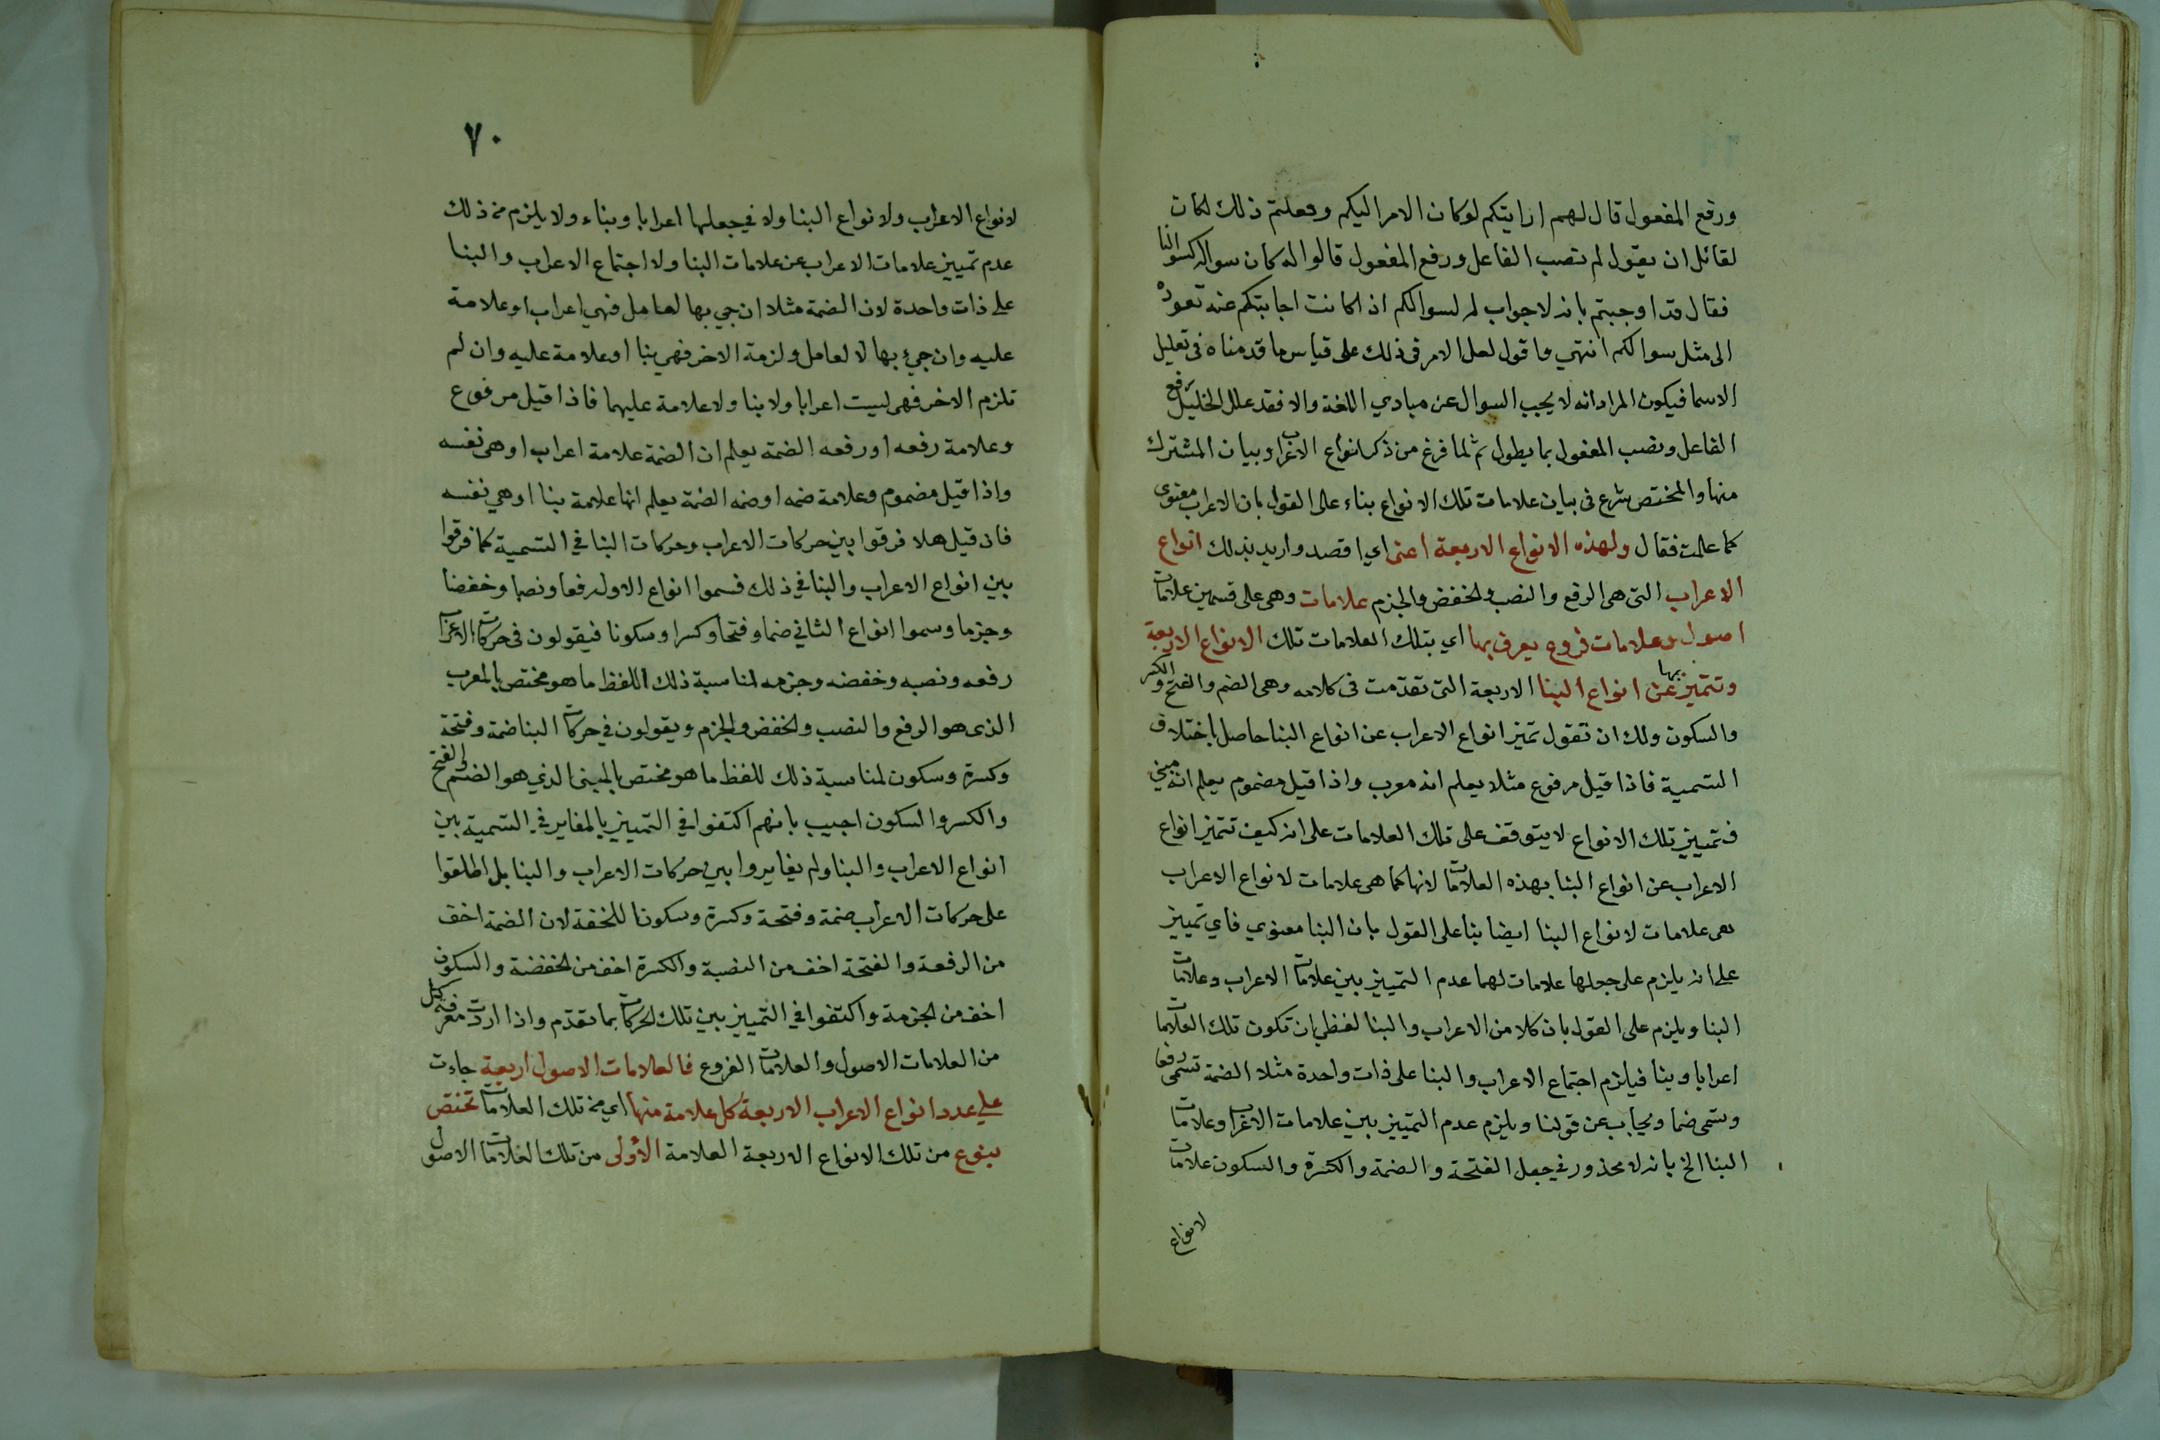 ورفع المفعول قال لهم ارايتكم لوكان الامر اليكم وفعلتم ذلك لكان
لقائل ان يقول لم نصب الفاعل ورفع المفعول قالوا له كان سواله كسوالنا
فقال قد اوجبتم بانه لا جواب لم لسوالكم اذ لكانت اجابتكم عنه تعود
الى مثل سوالكم انتهى واقول لعل الامر فى ذلك على قياس ما قدمناه فى تعليل
الاسما فيكون المراد انه لا يجب السوال عن مبادي اللغة والا فقد علل الخليل رفع
الفاعل ونصب المفعول بما يطول ثم لما فرغ من ذكر انواع الاعراب وبيان المشترك
منها والمختص شرع فى بيان علامات تلك الانواع بناء على القول بان الاعراب معنوى
كما علمت فقال ولهذه الانواع الاربعة اعنى اي اقصد واريد بذلك انواع
الاعراب التى هى الرفع والنصب والخفض والجزم علامات وهى على قسمين علامات
اصول وعلامات فروع يعرف بها اي بتلك العلامات تلك الانواع الاربعة
وتتميز بها عن انواع البنا الاربعة التى تقدمت فى كلامه وهى الضم والفتح والكسر
والسكون ولك ان تقول تميز انواع الاعراب عن انواع البنا حاصل باختلاف
التسمية فاذا قيل مرفوع مثلا يعلم انه معرب واذا قيل مضموم يعلم انه مبنى
فتمييز تلك الانواع لا يتوقف على تلك العلامات على انه كيف تتميز انواع
الاعراب عن انواع البنا بهذه العلامات لانها كما هى علامات لانواع الاعراب
هى علامات لانواع البنا ايضا بنا على القول بان البنا معنوي فاي تمييز
على انه يلزم على جعلها علامات لهما عدم التمييز بين علامات الاعراب وعلامات
البنا ويلزم على القول بان كلا من الاعراب والبنا لفظي ان تكون تلك العلامات
اعرابا وبنا فيلزم اجتماع الاعراب والبنا على ذات واحدة مثلا الضمة تسمى رفعا
وتسمى ضما ويجاب عن قولنا ويلزم عدم التمييز بين علامات الاعراب وعلامات
البنا الخ بانه لا محذور في جعل الفتحة والضمة والكسرة والسكون علامات
لانواع
٧٠
لانواع الاعراب ولانواع البنا ولا في جعلها اعرابا وبناء ولا يلزم من ذلك
عدم تمييز علامات الاعراب عن علامات البنا ولا اجتماع الاعراب والبنا
على ذات واحدة لان الضمة مثلا ان جي بها لعامل فهي اعراب او علامة
عليه وان جيء بها لا لعامل ولزمة الاخر فهي بنا او علامة عليه وان لم
تلزم الاخر فهى ليست اعرابا ولا بنا ولا علامة عليهما فاذا قيل مرفوع
وعلامة رفعه او رفعه الضمة يعلم ان الضمة علامة اعراب او هى نفسه
واذا قيل مضموم وعلامة ضمه او ضمه الضمة يعلم انها علامة بنا او هي نفسه
فان قيل هلا فرقوا بين حركات الاعراب وحركات البنا في التسمية كما فرقوا
بين انواع الاعراب والبنا في ذلك فسموا انواع الاول رفعا ونصبا وخفضا
وجزما وسموا انواع الثاني ضما وفتحا وكسرا وسكونا فيقولون فى حركات الاعراب
رفعه ونصبه وخفضه وجزمه لمناسبة ذلك اللفظ ما هو مختص بالمعرب
الذى هو الرفع والنصب والخفض والجزم ويقولون في حركات البنا ضمة وفتحة
وكسرة وسكون لمناسبة ذلك للفظ ما هو مختص بالمبنى الذي هو الضم والفتح
والكسر والسكون اجيب بانهم اكتفوا في التمييز بالمغاير في التسمية بين
انواع الاعراب والبنا ولم يغايروا بين حركات الاعراب والبنا بل اطلقوا
على حركات الاعراب ضمة وفتحة وكسرة وسكونا للخفة لان الضمة اخف
من الرفعة والفتحة اخف من النصبة والكسرة اخف من الخفضة والسكون
اخف من الجزمة واكتفوا في التمييز بين تلك الحركات بما تقدم واذا اردت معرفة كل
من العلامات الاصول والعلامات الفروع فالعلامات الاصول اربعة جاءت
على عدد انواع الاعراب الاربعة كل علامة منها اي من تلك العلامات تختص
بنوع من تلك الانواع الاربعة العلامة الأولى من تلك العلامات الاصول